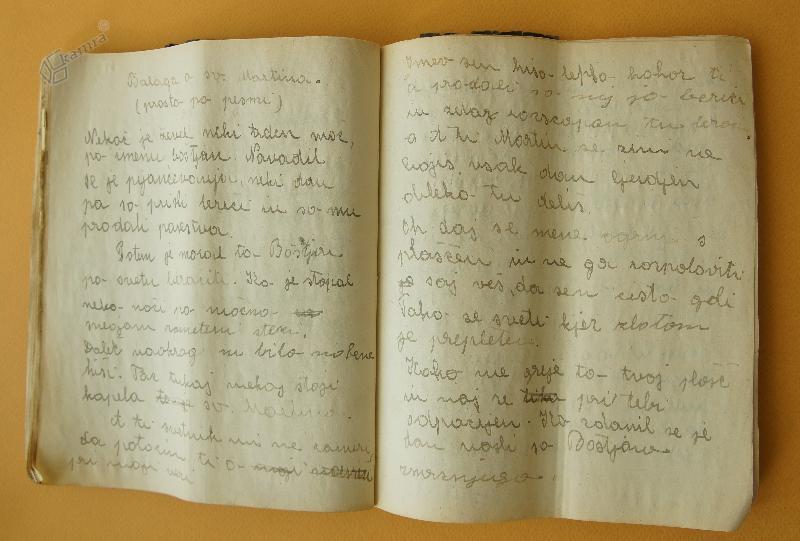 kamra
Balaga o sv. Martina.
(prosto po pesmi)
Nekoč je živel neki baden mož,
po imenu Boštjan. Navadil
se je pijančevanja, neki dan
pa so prišli beriči in so mu
prodali pohištvo.
Potem je moral ta Boštjan
po svetu beračiti. Ko je stopal
neko noči po močno
snegom zameteni stezi.
Daleč naokrog ni bilo nobene
hiši. Tar tukaj nekaj stoji
kapela sv. Martina.
A ti svetnik mi ne zameri,
da potočim ti o
pri moji
Imev sen hišo lepšo kohor ti
a prodali so moj jo beriči
in zdaj rozscapan tu
a ti Martin se zim ne
bojiš, vsak dan
obleko tu deliš.
Oh daj se mene ogrni s
plaščen in ne ga rozpoloviti
saj veš, da sen cisto gol
Tako se sveti kjer zlatom
je prepleten.
Kako me greje to tvoj plošč
in naj se pri tebi
odpočijen. Ko zdanil se je
dan našli so Boštjana
zmrznjega.